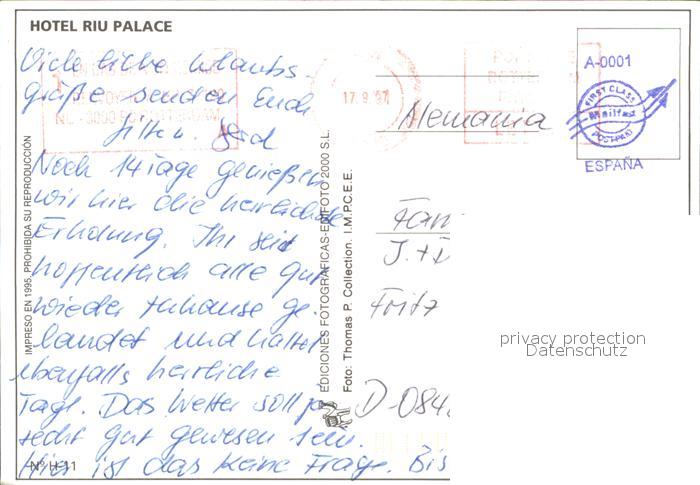 HOTEL RIU PALACE
Viele liebe Urlaubs-
grüße senden Euch
Noch 14 Tage genießen
wir hier die herrliche
Erholung. Ihr seid
hoffentlich alle gut
wieder zuhause ge-
landet und hattet
ebenfalls herrliche
Tage. Das Wetter soll ja
recht gut gewesen sein.
Hier ist das keine Frage. Bis
Nº H-11
IMPRESO EN 1995, PROHIBIDA SU REPRODUCCIÓN
EDICIONES FOTOGRAFICAS-EDIFOTO 2000 S.L.
Foto: Thomas P. Collection. I.M.P.C.E.E.
17.9.97
A-0001
FIRST CLASS
Mailfast
POSTPAID
ESPAÑA
Alemania
Fam
J. +
Fritz
D-084
privacy protection
Datenschutz